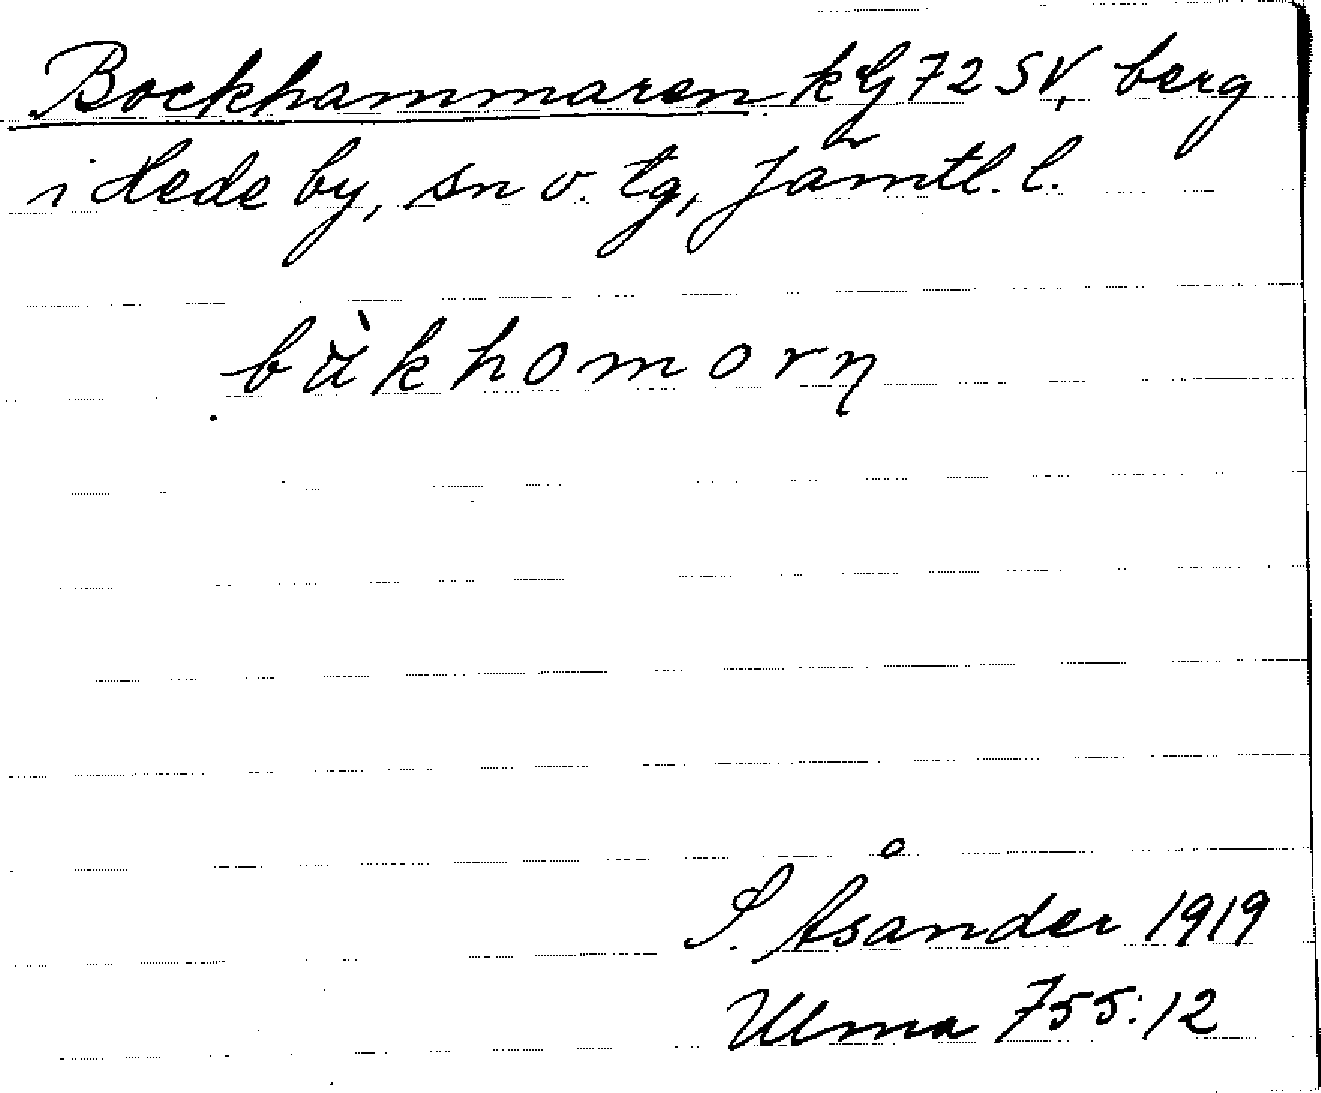 Bockhammaren kG 72 SV, berg
i Hede by, sn o. tg, Jämtl. l.
bàkhomorn
S. Åsander 1919
Ulma 755:12